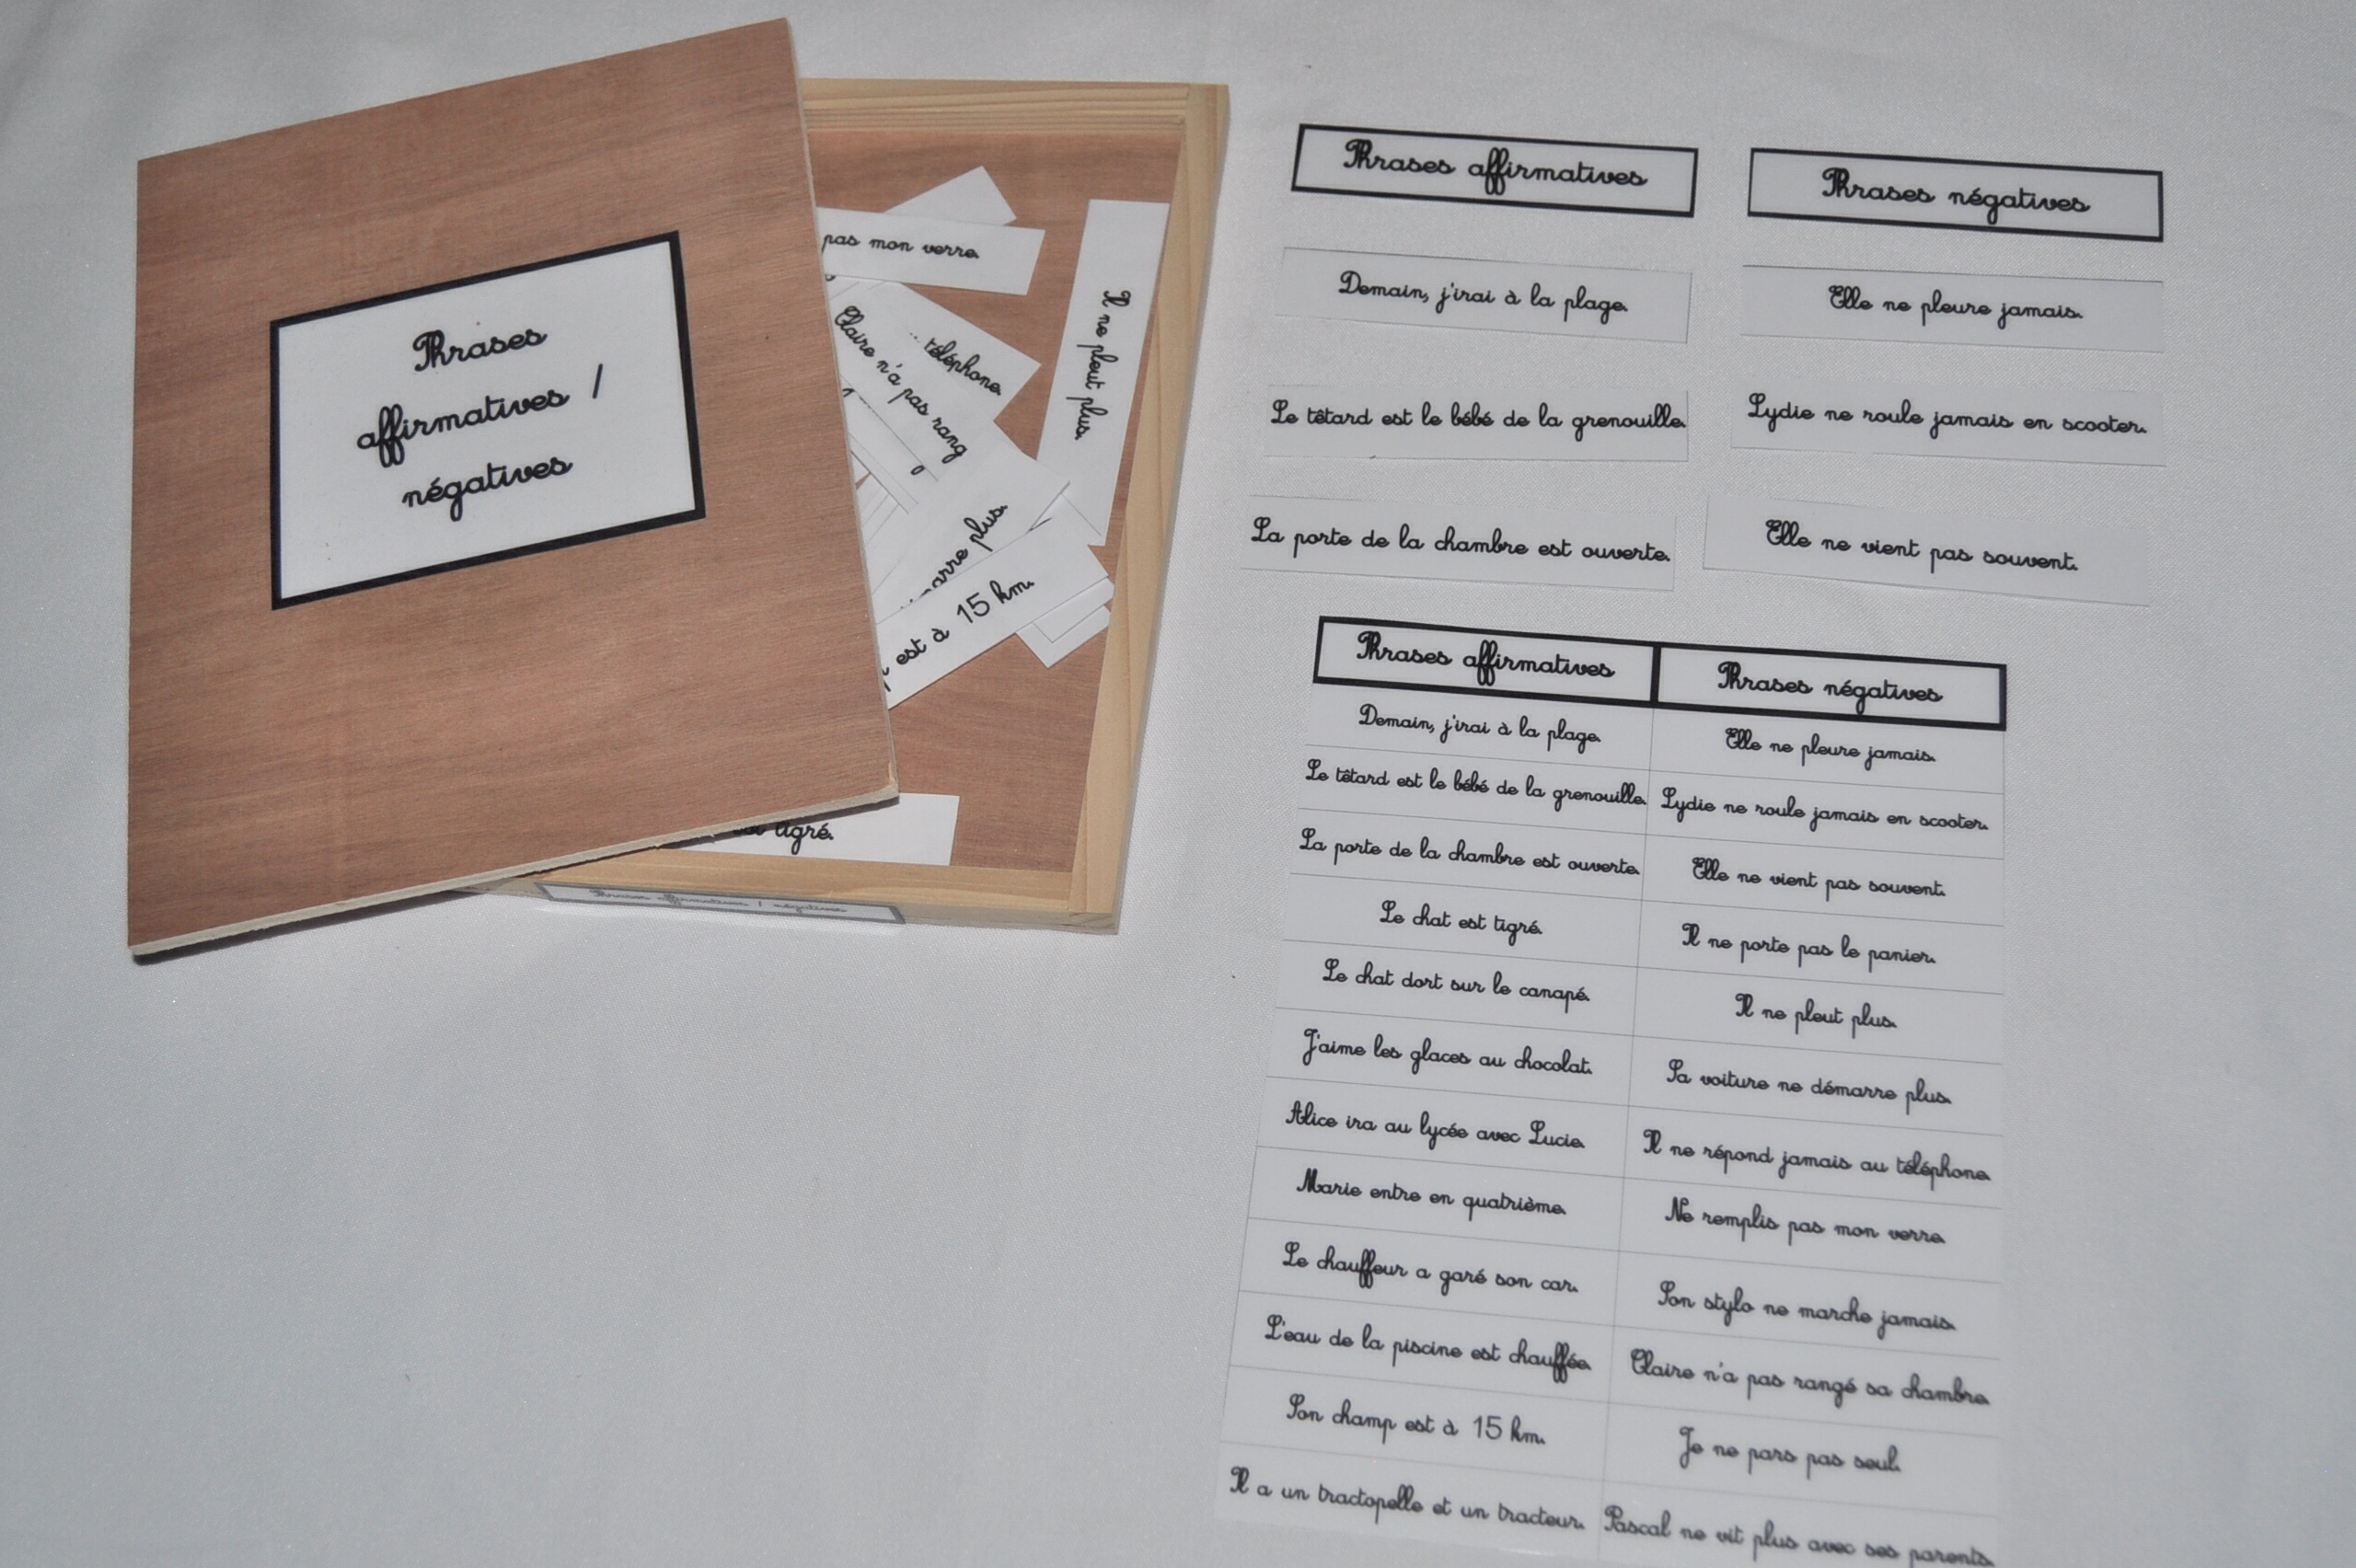 Phrases
affirmatives /
négatives
pas mon verre.
téléphone.
Claire n'a pas rang
Il ne pleut plus.
plus.
est à 15 km.
tigré.
Phrases affirmatives / négatives
Phrases affirmatives
Phrases négatives
Demain, j'irai à la plage.
Elle ne pleure jamais.
Le têtard est le bébé de la grenouille.
Lydie ne roule jamais en scooter.
La porte de la chambre est ouverte.
Elle ne vient pas souvent.
Phrases affirmatives
Phrases négatives
Demain, j'irai à la plage.
Elle ne pleure jamais.
Le têtard est le bébé de la grenouille.
Lydie ne roule jamais en scooter.
La porte de la chambre est ouverte.
Elle ne vient pas souvent.
Le chat est tigré.
Il ne porte pas le panier.
Le chat dort sur le canapé.
Il ne pleut plus.
J'aime les glaces au chocolat.
Sa voiture ne démarre plus.
Alice ira au lycée avec Lucie.
Il ne répond jamais au téléphone.
Marie entre en quatrième.
Ne remplis pas mon verre.
Le chauffeur a garé son car.
Son stylo ne marche jamais.
L'eau de la piscine est chauffée.
Claire n'a pas rangé sa chambre.
Son champ est à 15 km.
Je ne pars pas seul.
Il a un tractopelle et un tracteur.
Pascal ne vit plus avec ses parents.